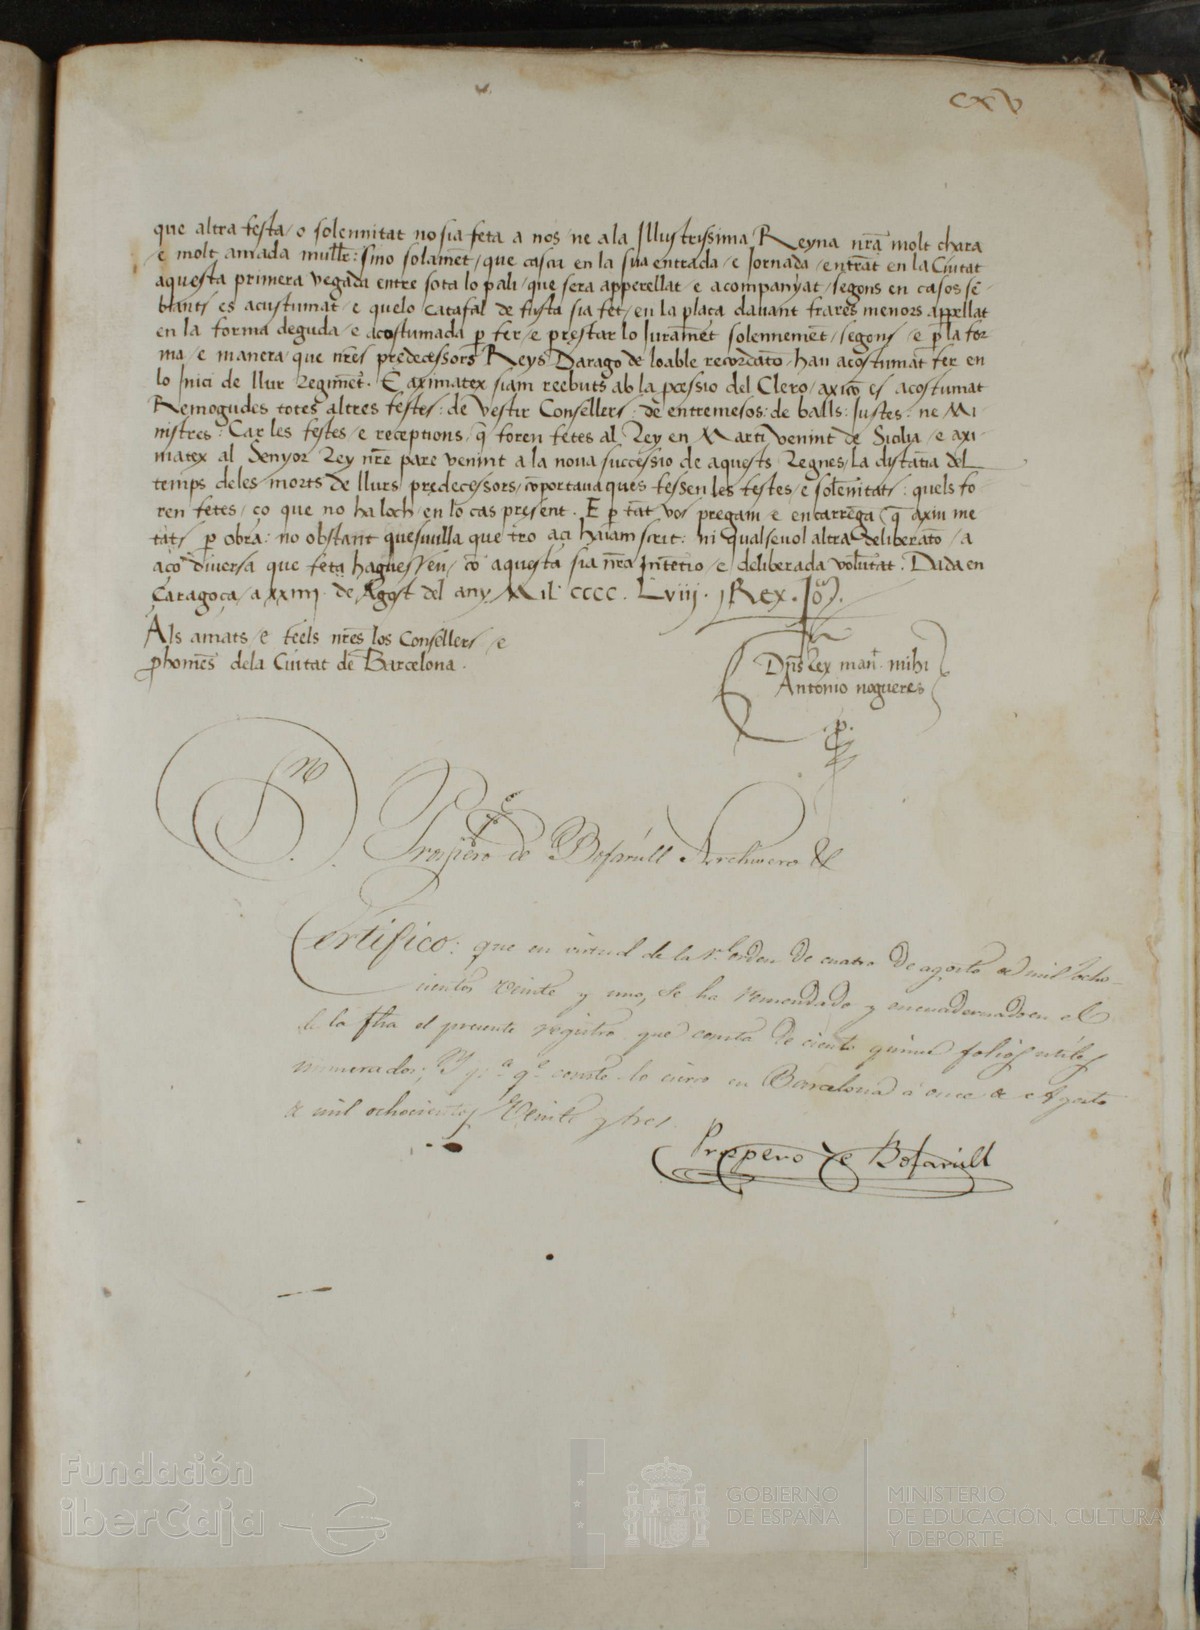 CXV
que altra festa / o solennitat no sia feta a nos / ne ala Illustrissima Reyna nr̃a molt chara
e molt amada mullr̃: sino solamẽt / que casc̃a en la sua entrada / e Jornada / entrãt en la Ciutat
aquesta primera vegada entre sota lo pali / que sera apperellat / e acompanyat / segons en casos sẽ-
blants es acustumat / e quelo catafal de fusta sia fet / en la plaça davant frares menors appellat
en la forma deguda / e acostumada p̱ fer / e prestar lo Juramẽt solennemẽt / segons / e p̱ la for
ma / e manera / que nr̃es predecessors Reys Darago de loable recordatõ / han acostumat fer en
lo Inici de llur Regimẽt. E aximatex siam reebuts ab la p̱cessio del Clero / axicõ es acostumat
Remogudes totes altres festes: de vestir Consellers: de entremesos: de balls: Justes: ne Mi-
nistres: Car les festes / e receptions / q̃ foren fetes al Rey en Marti venint de Sicilia / e axi-
matex al Senyor Rey nr̃e pare venint a la nova successio de aquests Regnes / la distãtia del
temps deles morts de llurs predecessors / cõportava ques fessen les festes / e solẽnitats: quels fo-
ren fetes / ço que no ha loch / en lo cas present. E p̱ tãt vos pregam e encarrega q̃ axiu me
tats p̱ obra: no obstant quesuilla que tro aci haiam scrit: ni qualsevol altra deliberatõ / a
aço diversa que feta haguessen / cõ aquesta sia nr̃a Intẽtio / e deliberada volũtat. Dada en
Çaragoça / a xxiiij de Agost del any Mil cccc. Lviij. Rex. Joã.
Als amats / e feels nr̃es los Consellers / e
p̱homẽs dela Ciutat de Barcelona.
Dñs Rex mañ. mihi
Antonio nogueres
p.
Dn
Prospero de Bofarull Archivero &
Certifico: que en virtud de la rl. orden de cuatro de agosto de mil ocho-
cientos veinte y uno, se ha remendado y encuadernado en el
de la fha el presente registro que consta de ciento quince folios utiles
numerados; Y pa. qe. conste lo firmo en Barcelona á once de Agosto
de mil ochocientos veinte y tres
Prospero de Bofarull
Fundación
iberCaja
GOBIERNO
DE ESPAÑA
MINISTERIO
DE EDUCACIÓN, CULTURA
Y DEPORTE